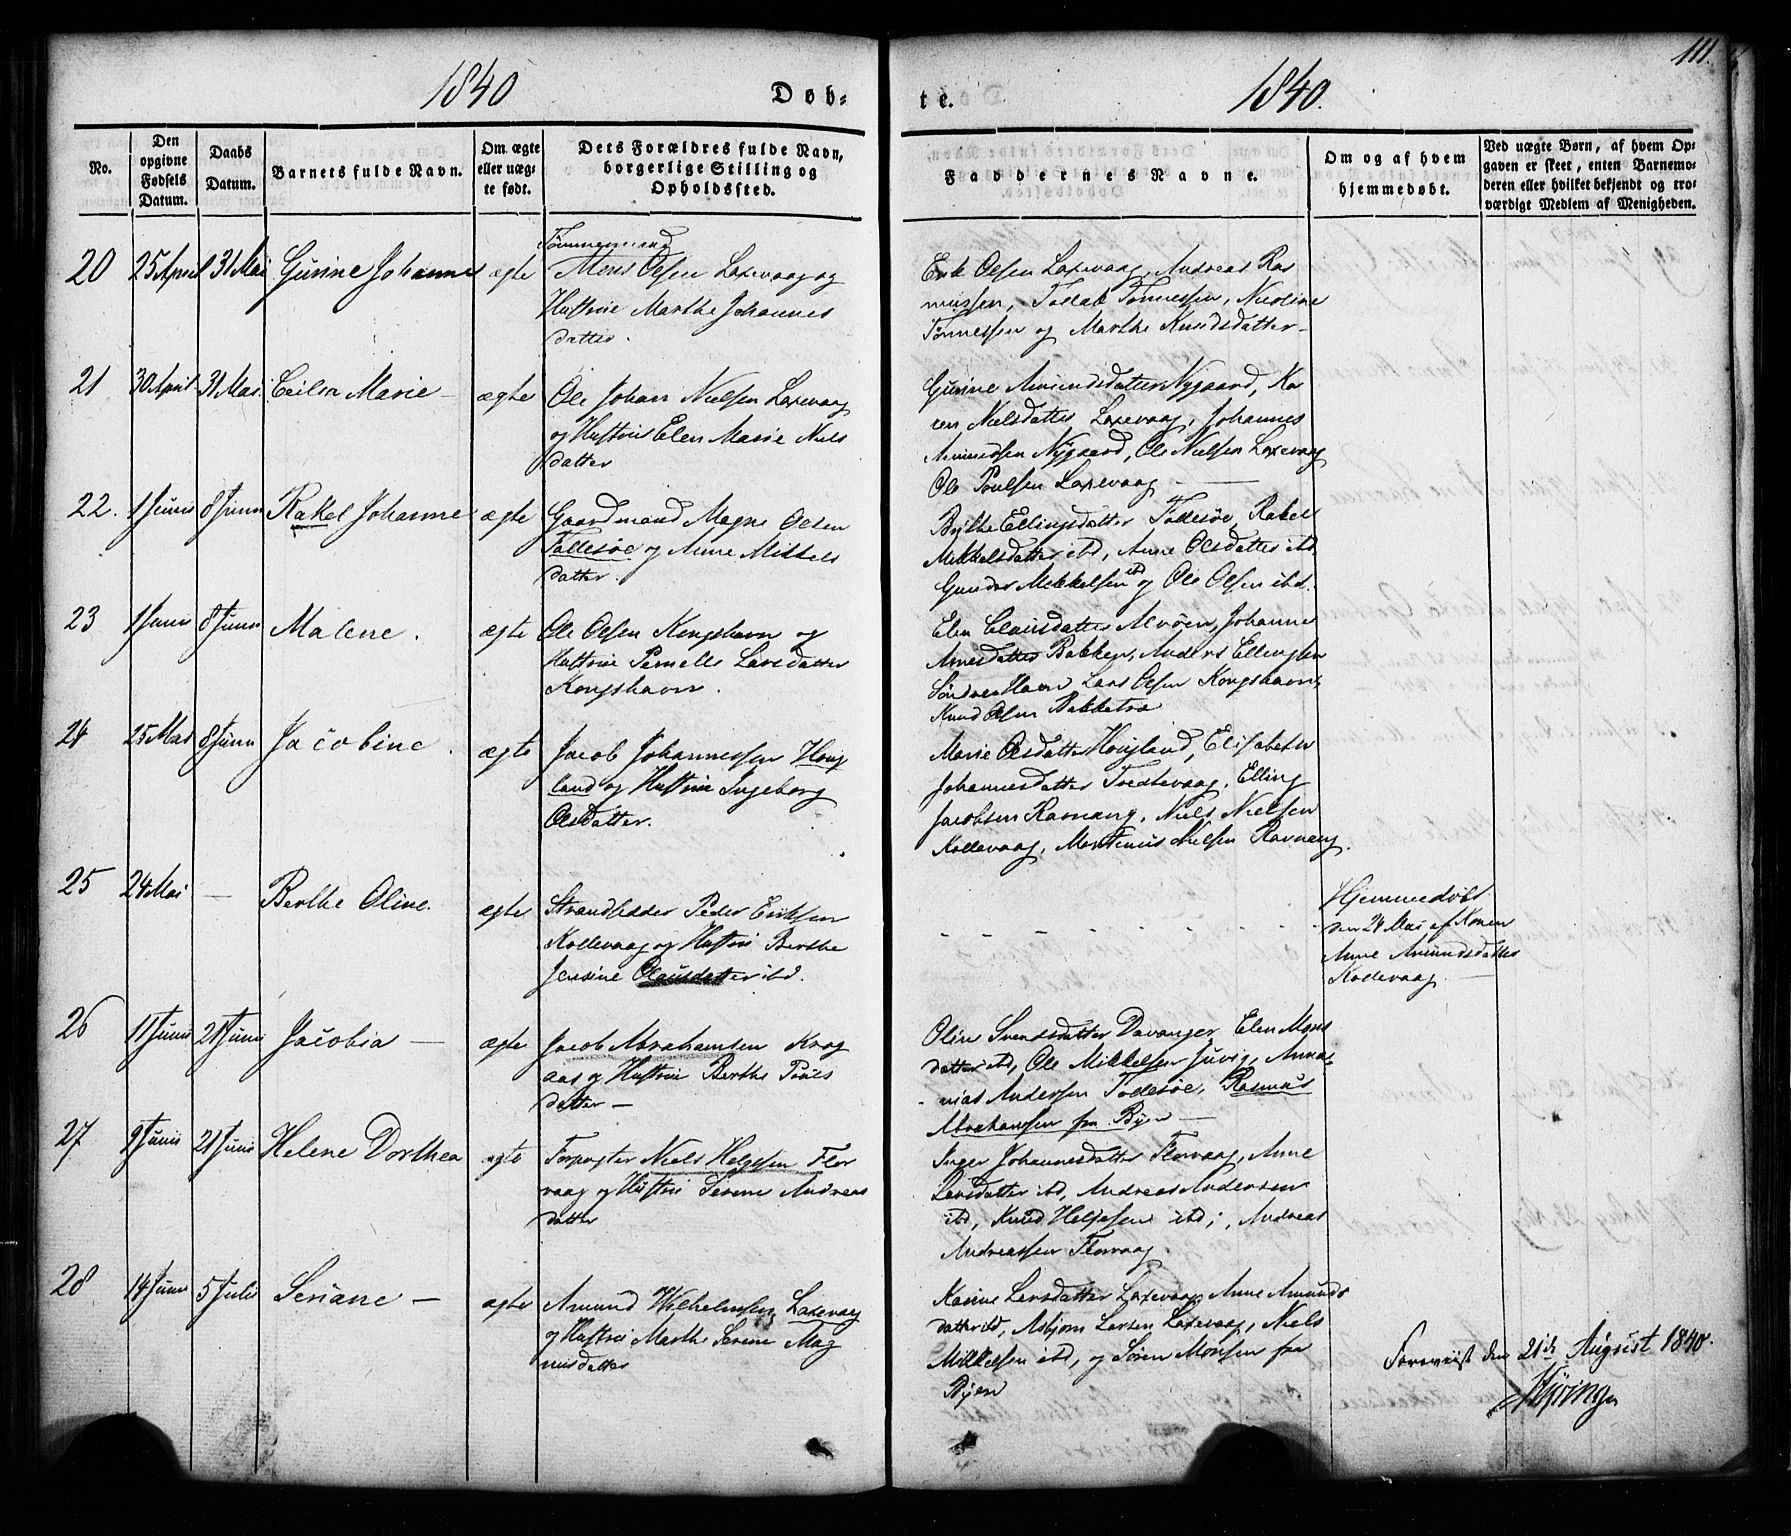 111.
1840
Døb-
te.
1840.
No.
Den opgivne Fødsels Datum.
Daabs Datum.
Barnets fulde Navn.
Om ægte eller uægte født.
Dets Forældres fulde Navn, borgerlige Stilling og Opholdssted.
Faddernes Navne.
Om og af hvem hjemmedøbt.
Ved uægte Børn, af hvem Opgaven er skeet, enten Barnemoderen eller hvilket bekjendt og troværdigt Medlem af Menigheden.
20 25 April 31 Mai Gurine Johanne ægte
Tømmermand
Mons Olsen Laxevaag og
Hustrue Marthe Johannes
datter.
Erik Olsen Laxevaag, Andreas Ras
mussen, Tollak Tønnessen, Nicoline
Tønnessen og Marthe Knudsdatter-
21 30 April 31 Mai Ceilia Marie - ægte
Ole Johan Nielsen Laxevaag
og Hustrue Elen Marie Niels
datter
Gurine Amundsdatter Nygaard, Ka
ren Nielsdatter Laxevaag, Johannes
Amundsen Nygaard, Ole Nielsen Laxevaag
Ole Poulsen Laxevaag -
22. 1 Junii 8 Junii Rakel Johanne ægte
Gaardmand Magne Olsen
Follesøe og Anne Mikkels
datter.
Brithe Ellingsdatter Follesøe Rakel
Mikkelsdatter ibd, Anne Olsdatter ibd
Gunder Mikkelsen ibd og Ole Olsen ibd.
23 1 Junii 8 Junii Malene. ægte
Ole Olsen Kongshavn og
Hustrue Pernelle Larsdatter
Kongshavn.
Elen Clausdatter Alvøen, Johanne
Arnesdatter Bakken, Anders Ellingsen
Søndre Havn Lars Olsen Kongshavn,
Knud Olsen Bakketræ
24 25 Mai 8 Junii Jacobine. ægte
Jacob Johannessen Houg
land og Hustrue Ingeborg
Olsdatter.
Marie Olsdatter Hougland, Elisabeth
Johannesdatter Tvedtevaag, Elling
Jacobsen Ravnang, Niels Nielsen
Kollevaag, Martinus Nielsen Ravnang.
25 24 Mai — Berthe Oline. ægte
Strandsidder Peder Eriksen
Kollevaag og Hustrue Berthe
Jensine Olausdatter ibd.
- - - - - - - - -
Hjemmedøbt
den 24 Mai af Konen
Anne Amundsdatter
Kollevaag. -
26 11 Junii 21 Junii Jacobia - ægte
Jacob Abrahamsen Krog
aas og Hustrue Berthe Pouls
datter -
Oline Svendsdatter Davanger, Elen Mons
datter ibd, Ole Mikkelsen Juvig, Anna-
nias Andersen Follesøe, Rasmus
Abrahamsen fra Byen -
27 9 Junii 21 Junii Helene Dorthea ægte
Forpagter Niels Helgesen Flor
vaag og Hustrue Serene Andreas
datter
Inger Johannesdatter Florvaag, Anne
Larsdatter ibd, Andreas Andersen
ibd, Knud Helgesen ibd, Andreas
Andreassen Florvaag.
28 14 Junii 5 Julii Seriane - ægte
Amund Wilhelmsen Laxevaag
og Hustrue Marthe Serene Mag
nusdatter
Karine Larsdatter Laxevaag Anne Amunds
datter ibd, Asbjørn Larsen Laxevaag, Niels
Mikkelsen ibd, og Søren Monsen fra
Byen
Foreviist den 21de August 1840.